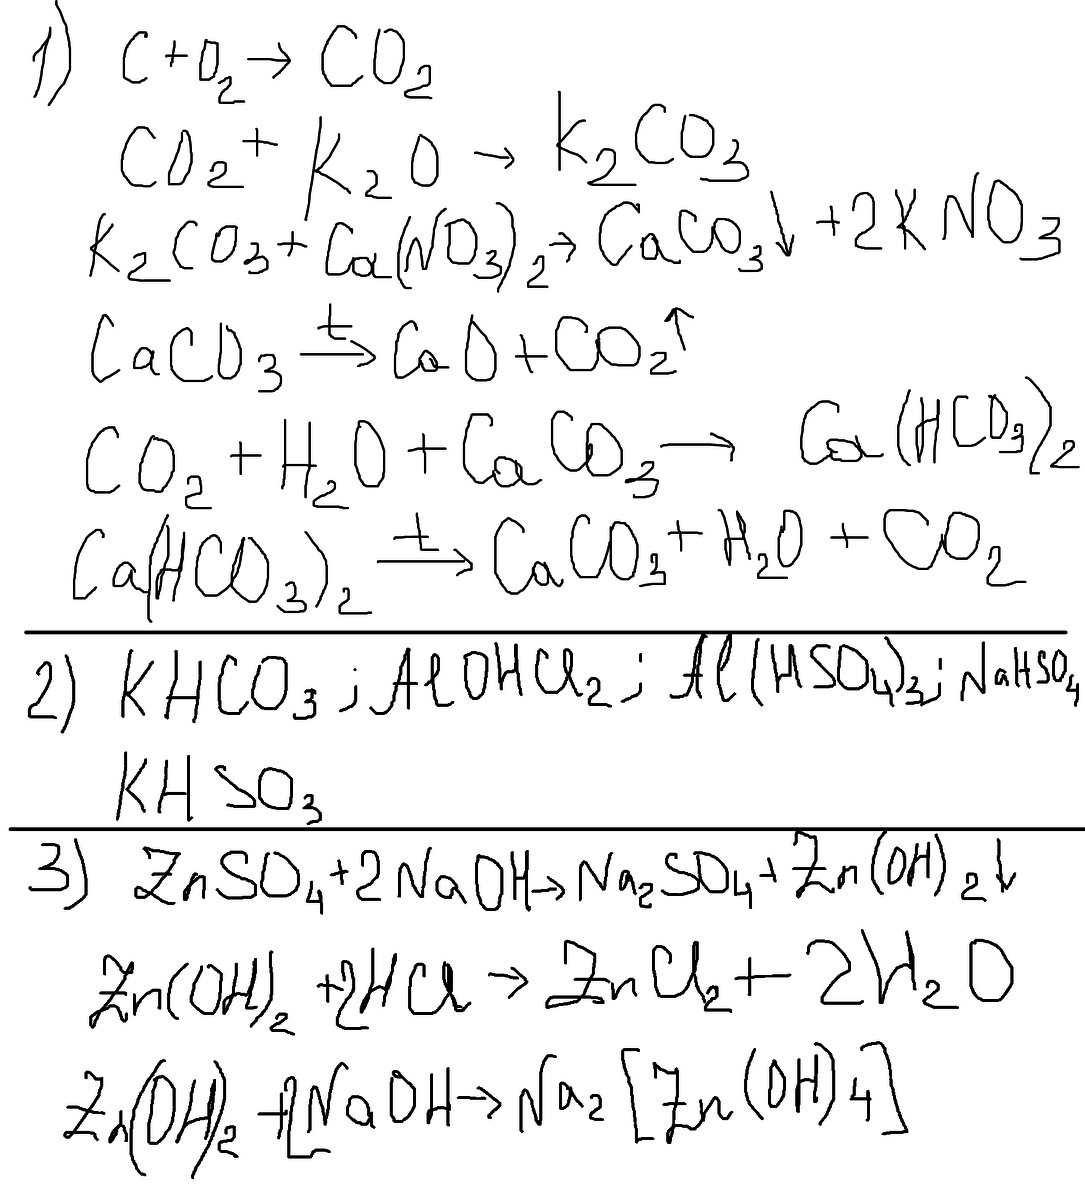 1) C + O₂ → CO₂
CO₂ + K₂O → K₂CO₃
K₂CO₃ + Ca(NO₃)₂ → CaCO₃↓ + 2KNO₃
CaCO₃ —t→ CaO + CO₂↑
CO₂ + H₂O + CaCO₃ → Ca(HCO₃)₂
Ca(HCO₃)₂ —t→ CaCO₃ + H₂O + CO₂
2) KHCO₃; AlOHCl₂; Al(HSO₄)₃; NaHSO₄
KHSO₃
3) ZnSO₄ + 2NaOH → Na₂SO₄ + Zn(OH)₂↓
Zn(OH)₂ + 2HCl → ZnCl₂ + 2H₂O
Zn(OH)₂ + 2NaOH → Na₂[Zn(OH)4]